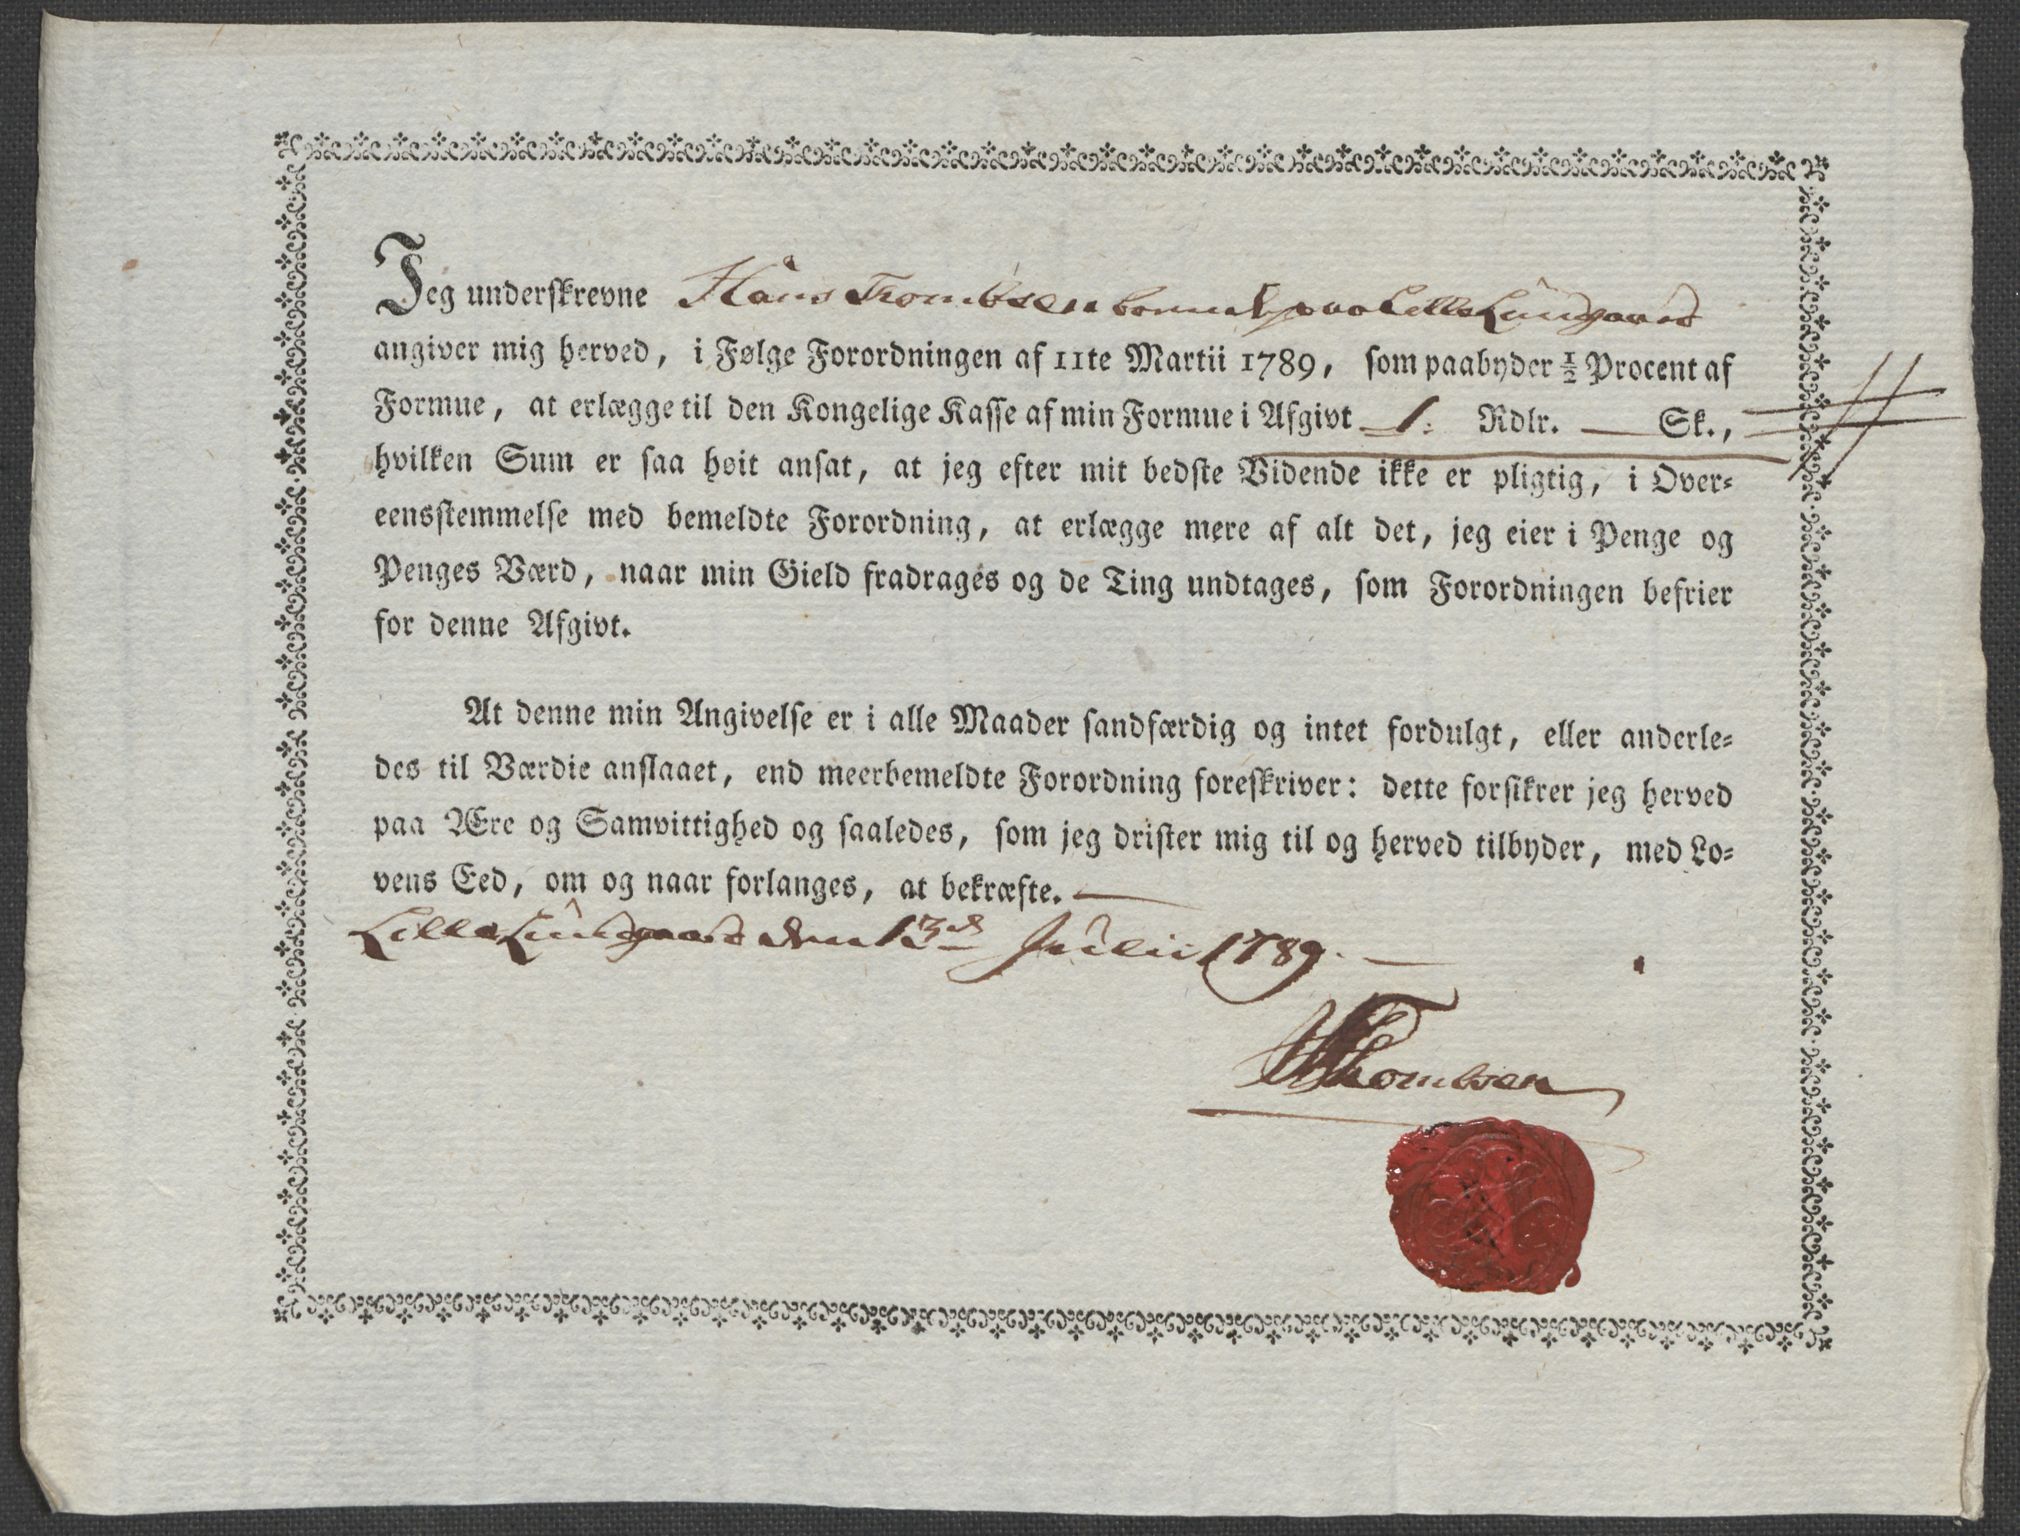 Jeg underskrevne Hans Trombsen boende paa Lille Lungaard
angiver mig herved, i Følge Forordningen af 11te Martii 1789, som paabyder ½ Procent af
Formue, at erlægge til den Kongelige Kasse af min Formue i Afgivt 1. Rdlr. — Sk.,
hvilken Sum er saa høit ansat, at jeg efter mit bedste Vidende ikke er pligtig, i Over-
eensstemmelse med bemeldte Forordning, at erlægge mere af alt det, jeg eier i Penge og
Penges Værd, naar min Gield fradrages og de Ting undtages, som Forordningen befrier
for denne Afgivt.
At denne min Angivelse er i alle Maader sandfærdig og intet fordulgt, eller anderle-
des til Værdie anslaaet, end meerbemeldte Forordning foreskriver: dette forsikrer jeg herved
paa Ære og Samvittighed og saaledes, som jeg drister mig til og herved tilbyder, med Lo-
vens Eed, om og naar forlanges, at bekræfte. —
Lille Lungaard den 13d Julii 1789. —
HTrombsen